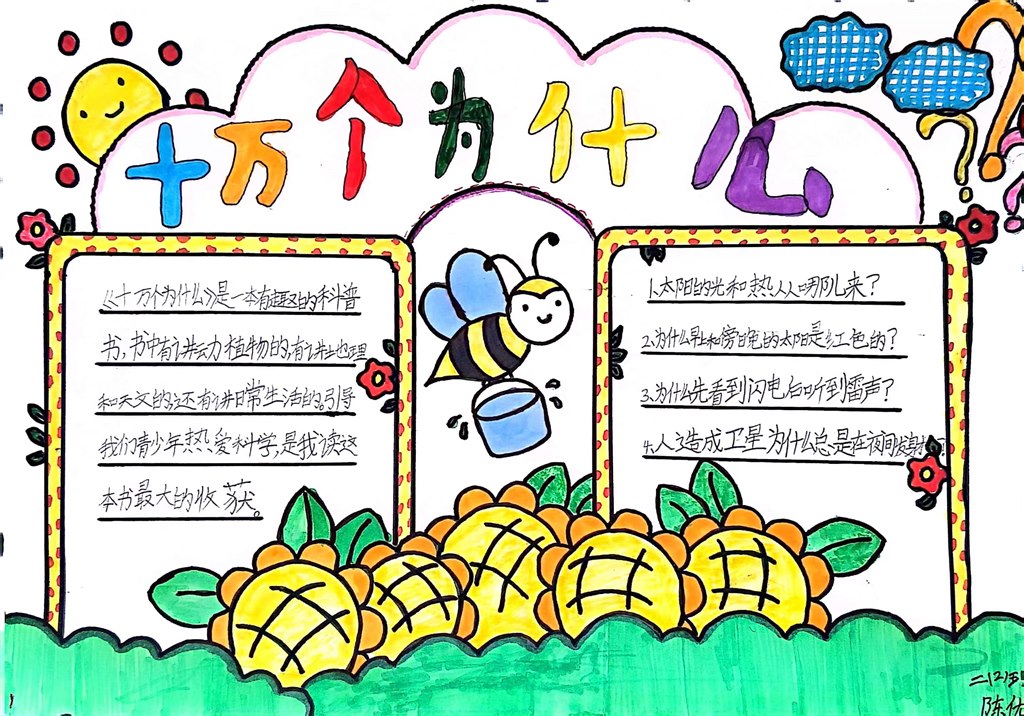 十万个为什么
《十万个为什么》是一本有趣的科普
书,书中有讲动植物的,有讲地理
和天文的,还有讲日常生活的。引导
我们青少年热爱科学,是我读这
本书最大的收获。
1.太阳的光和热从哪儿来?
2.为什么早上和傍晚的太阳是红色的?
3.为什么先看到闪电后听到雷声?
4.人造成卫星为什么总是在夜间发射
二(2)班
陈佑